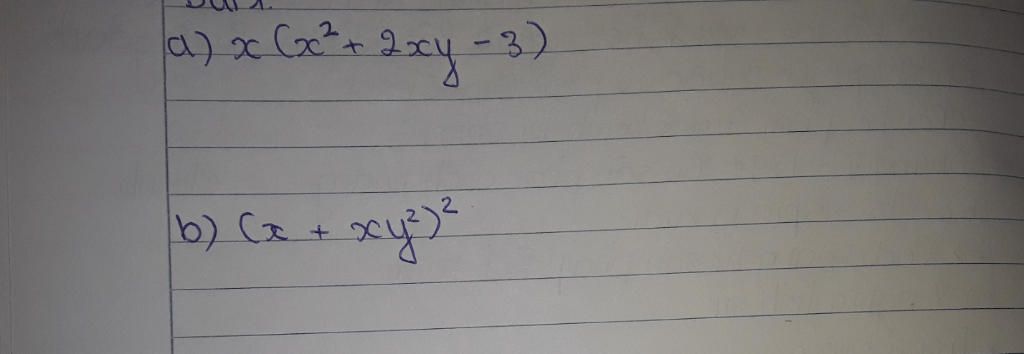 a) x (x² + 2xy - 3)
b) (x + xy²)²